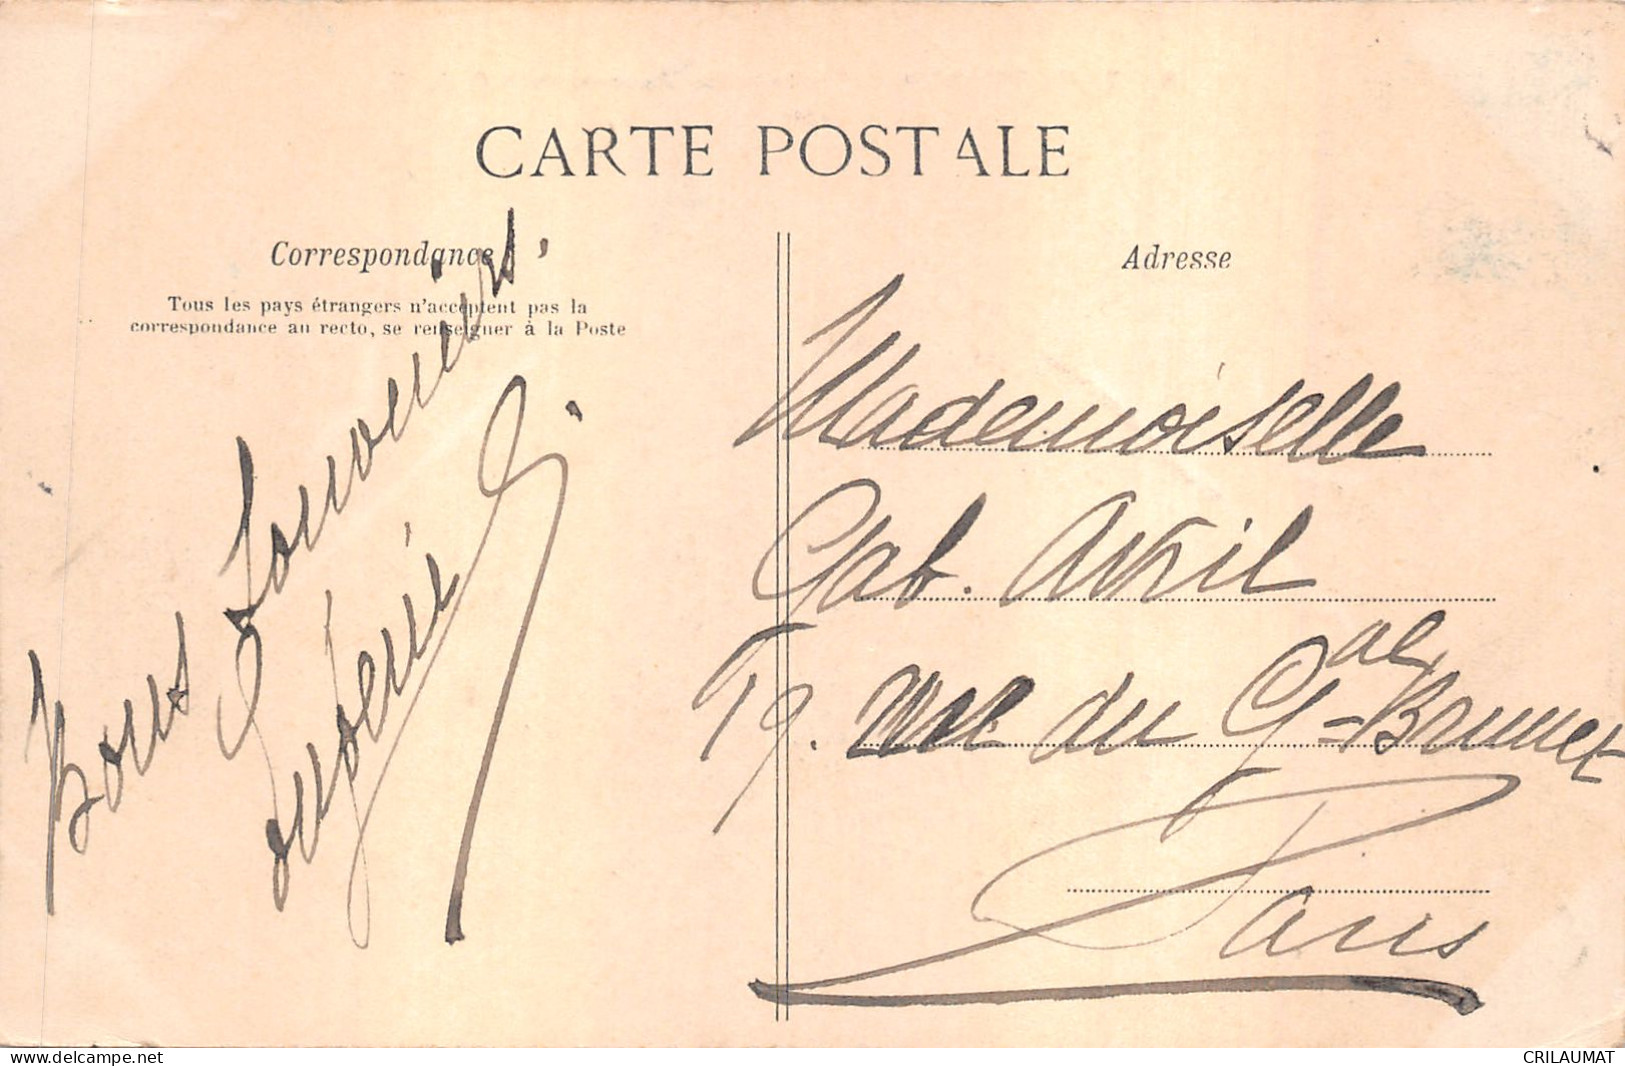 CARTE POSTALE
Correspondance
Tous les pays étrangers n'acceptent pas la
correspondance au recto, se renseigner à la Poste
Bons Souvenirs.
Eugénie G.
Adresse
Mademoiselle
Gab. Avril
19. rue du Gal-Brunet
Paris
www.delcampe.net
CRILAUMAT